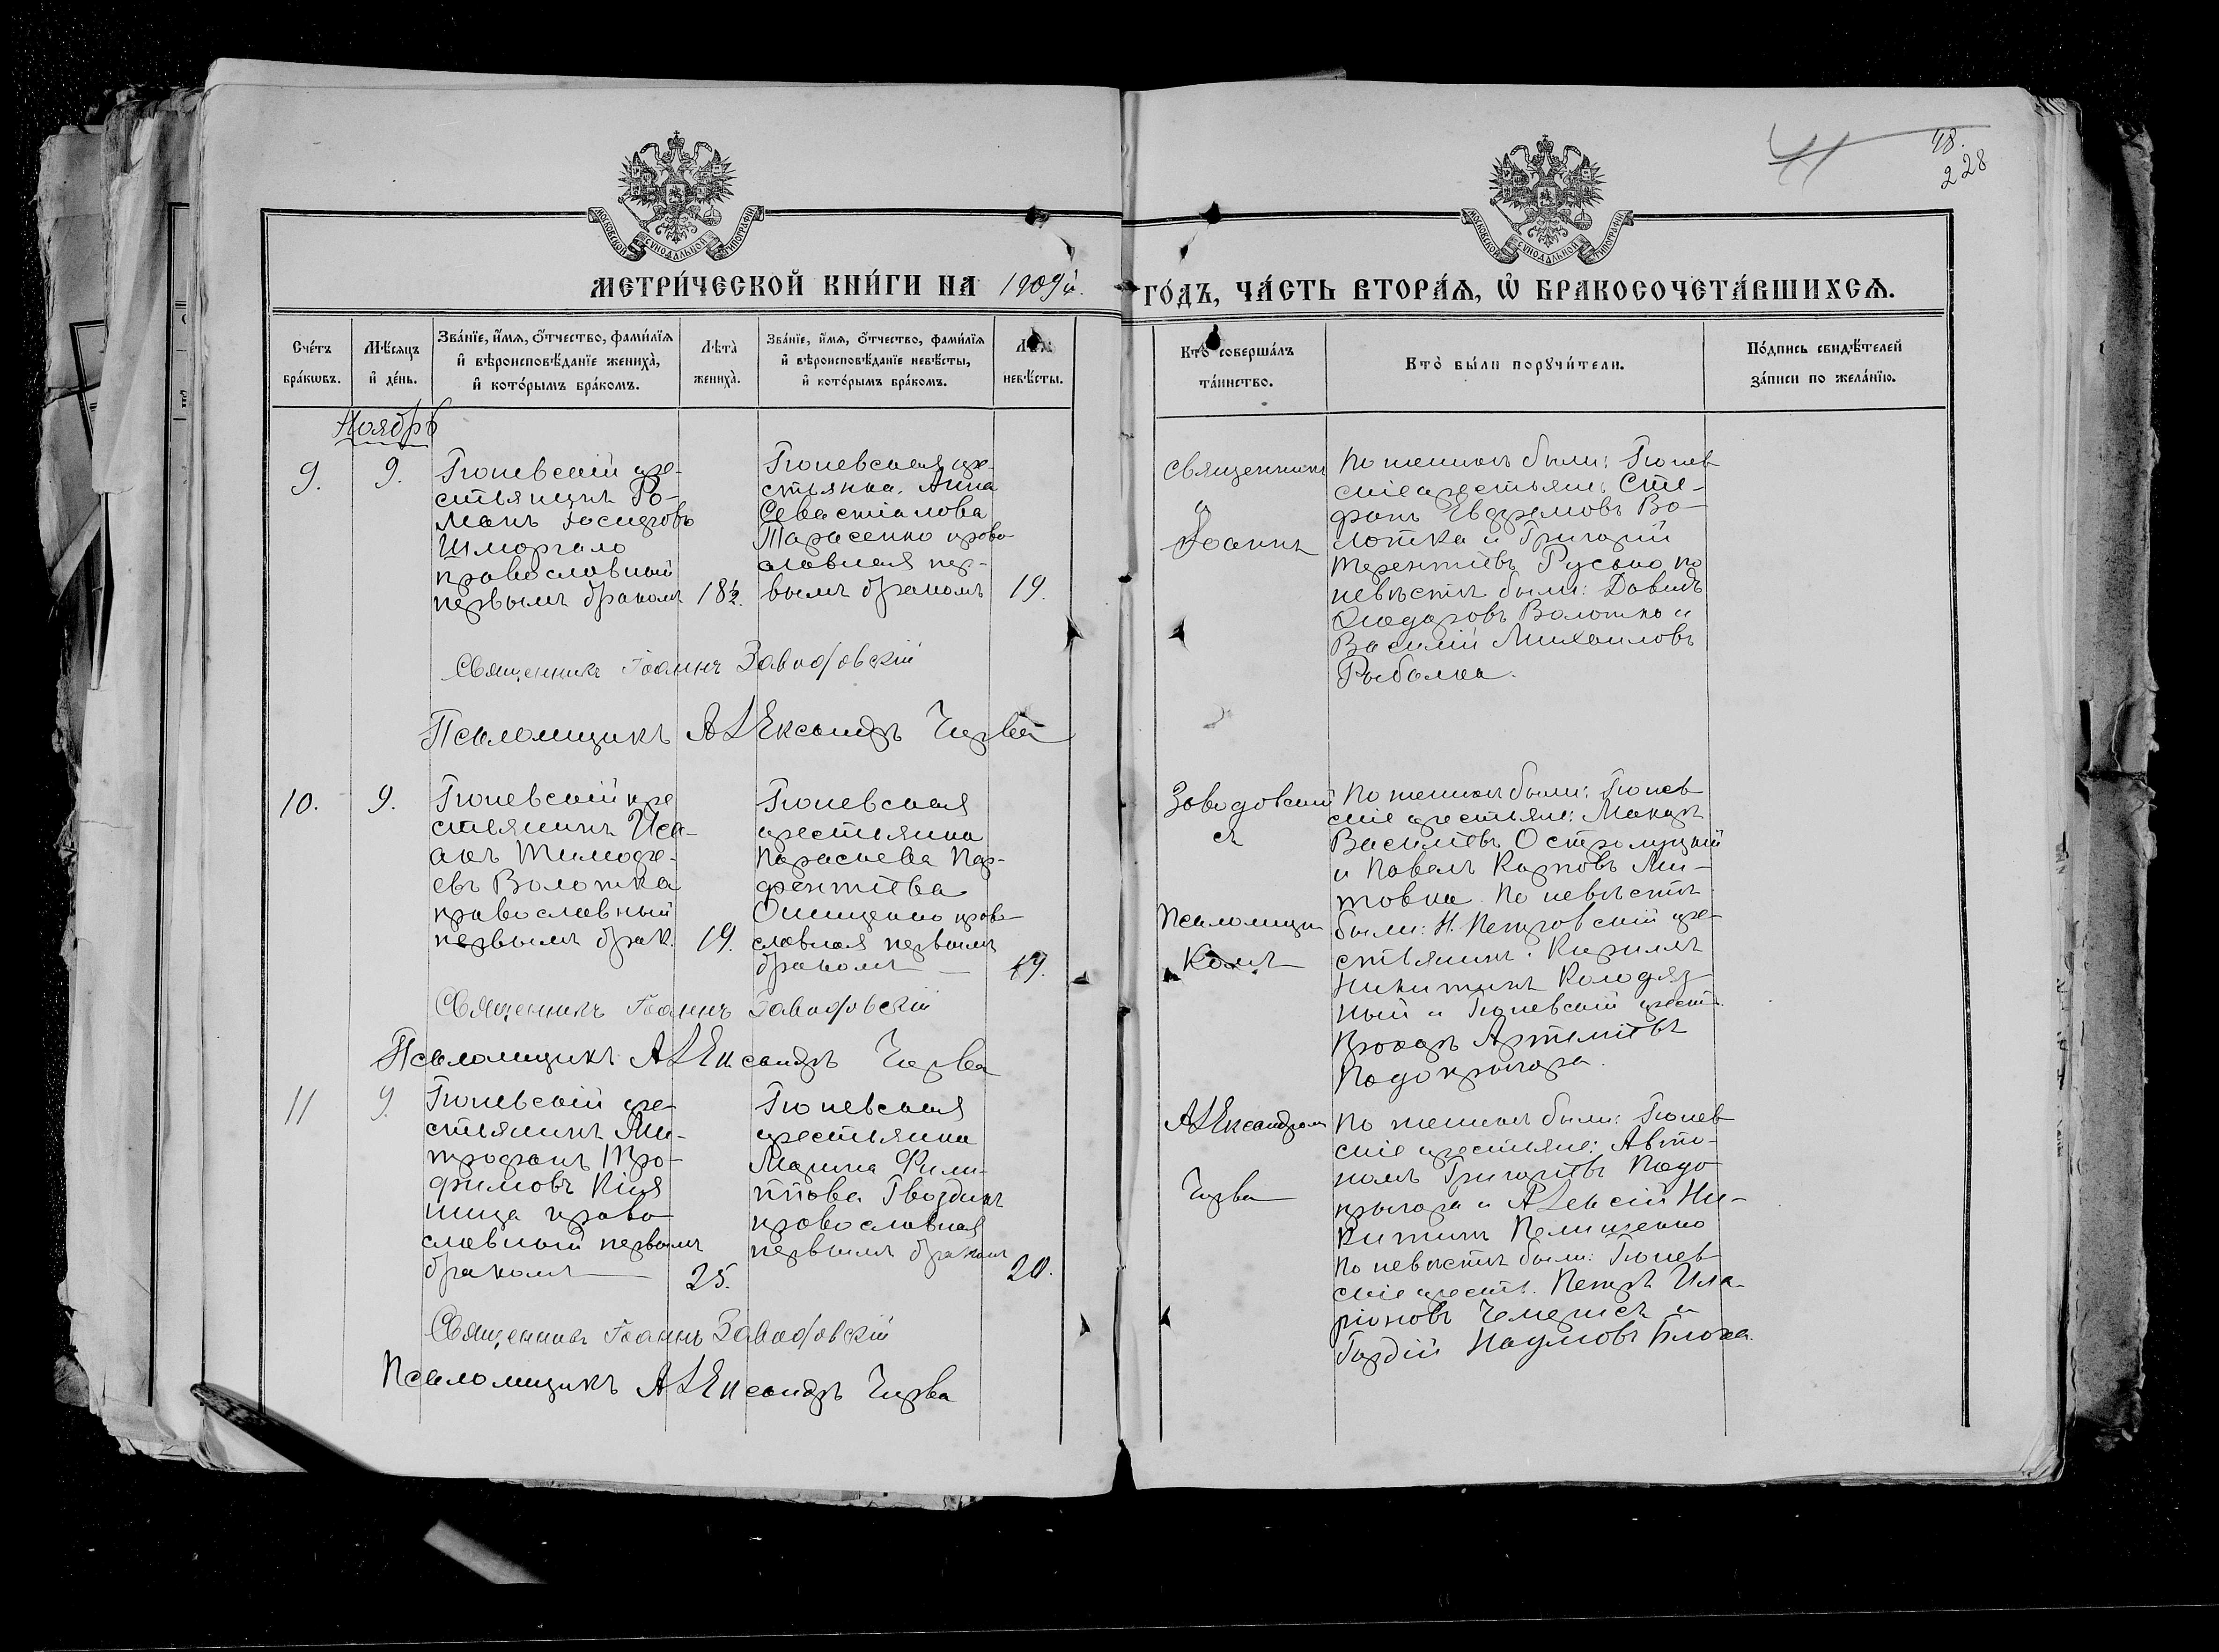 48.
228
МОСКОВСКОЙ СѴНОДАЛЬНОЙ ТИПОГРАФІИ
МОСКОВСКОЙ СѴНОДАЛЬНОЙ ТИПОГРАФІИ
МЕТРИ́ЧЕСКОЙ КНИ́ГИ НА 1909й. ГО́ДЪ, ЧА́СТЬ ВТОРА́Ѧ, Ѡ҆ БРАКОСОЧЕТА́ВШИХСѦ.
Сче́тъ бра́кωвъ.
Мѣ́сяцъ и҆ де́нь.
Зва́нїе, и҆́мѧ, ѻ҆́тчество, фами́лїѧ
и҆ вѣроисповѣ́данїе жениха̀,
и҆ кото́рымъ бра́комъ.
Лѣта̀ жениха̀.
Зва́нїе, и҆́мѧ, ѻ҆́тчество, фами́лїѧ
и҆ вѣроисповѣ́данїе невѣ́сты,
и҆ кото́рымъ бра́комъ.
невѣ́сты.
Кто̀ соверша́лъ
та́инство.
Кто̀ бы́ли порꙋчи́тели.
По́дпись свидѣ́телей
за́писи по жела́нїю.
Ноябрь
9.
9.
Гюневскій кре-
стьянинъ Ро-
манъ
Шморгало
православный
первымъ бракомъ
18½.
Гюневская кре-
стьянка, Анна
Севастіанова
Тарасенко право
славная пер-
вымъ бракомъ
19.
Священникъ
Іоаннъ
По женихѣ были: Гюнев
скіе крестьяне: Сте-
фанъ Евфремовъ Во-
лотка и Григорій
Терентіевъ Русько, по
невѣстѣ были: Давидъ
Ѳиодоровъ Волотко и
Василій Михаиловъ
Рыбалка.
Священникъ Іоаннъ Заводовскій
Псаломщикъ АЛЕксандръ Чирва
10.
9.
Гюневскій кре
стьянинъ Иса-
акъ Тимофе-
евъ Волотка
православный
первымъ брак.
19.
Гюневская
крестьянка
Параскева Пар-
фентіева
Онищенко право-
славная первымъ
бракомъ
19.
Заводовскій
съ
Псаломщи
комъ
По женихѣ были: Гюнев
скіе крестьяне: Макаръ
Василіевъ Остролуцкій
и Павелъ Карповъ Ли-
товка. По невѣстѣ
были: Н. Петровскій кре-
стьянинъ. Кириллъ
Никитинъ Колодяз-
ный и Гюневскій крест.
Прохоръ Артеміевъ
Подопригора.
Священникъ Іоаннъ Заводовскій
Псаломщикъ АЛЕксандръ Чирва
11
9.
Гюневскій кре-
стьянинъ Ми-
трофанъ Тро-
фимовъ Кія
ница право
славный первымъ
бракомъ
25.
Гюневская
крестьянка
Марина Фили-
ппова Гвоздикъ
православная
первымъ бракомъ
20.
АЛЕксандромъ
Чирва
По женихѣ были: Гюнев
скіе крестьяне: Авто-
номъ Григоріевъ Подо
пригора и АЛексій Ни-
китинъ Полищенко
По невѣстѣ были: Гюнев
скіе крест. Петръ Ила-
ріоновъ Чемерисъ и
Гордій Наумовъ Блоха.
Священникъ Іоаннъ Заводовскій
Псаломщикъ АЛЕксандръ Чирва